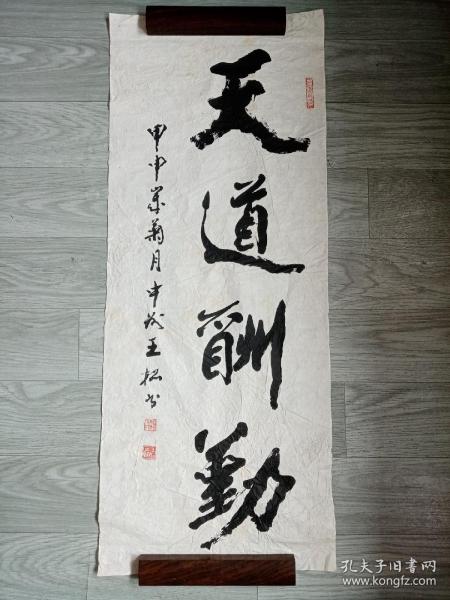 天道酬勤
甲申年菊月中浣王松书
孔夫子旧书网
www.kongfz.com